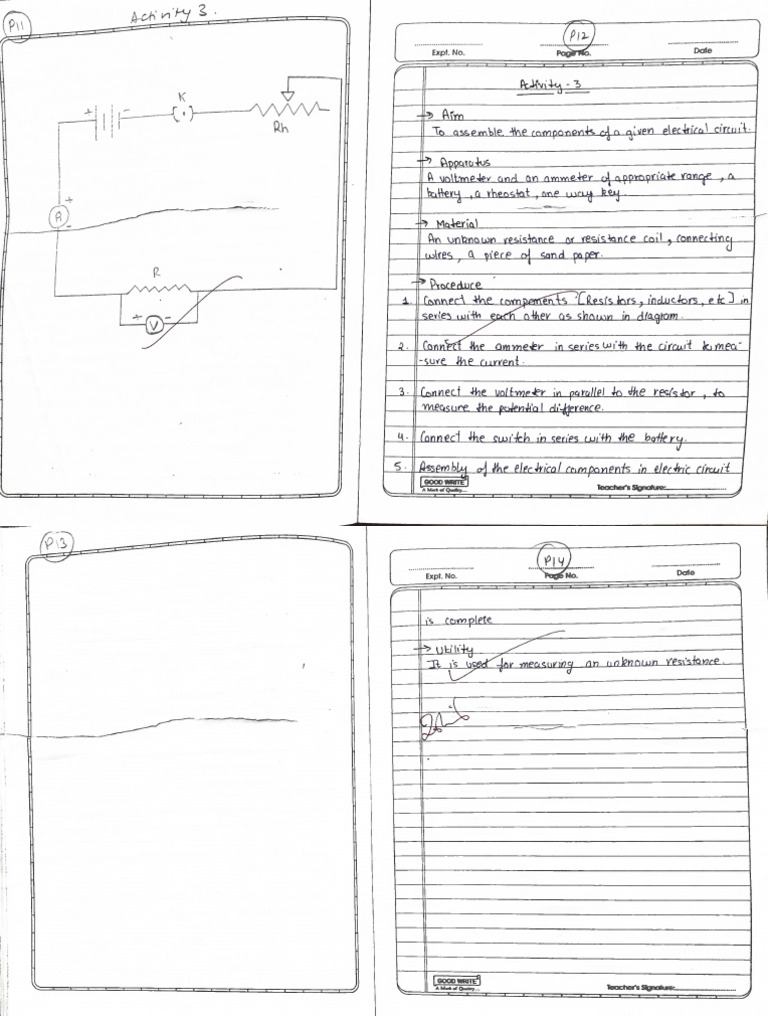 P11
Activity 3.
+ -
K
(·)
Rh
+
A
-
R
+ V -
P12
Expt. No.
Page No.
Date
Activity - 3
→ Aim
To assemble the components of a given electrical circuit.
→ Apparatus
A voltmeter and an ammeter of appropriate range, a
battery, a rheostat, one way key.
→ Material
An unknown resistance or resistance coil, connecting
wires, a piece of sand paper.
→ Procedure
1. Connect the components [Resistors, inductors, etc] in
series with each other as shown in diagram.
2. Connect the ammeter in series with the circuit to mea-
-sure the current.
3. Connect the voltmeter in parallel to the resistor, to
measure the potential difference.
4. Connect the switch in series with the battery.
5. Assembly of the electrical components in electric circuit
GOOD WRITE
A Mark of Quality...
Teacher's Signature:
P13
P14
Expt. No.
Page No.
Date
is complete
→ Utility
It is used for measuring an unknown resistance.
GOOD WRITE
A Mark of Quality...
Teacher's Signature: